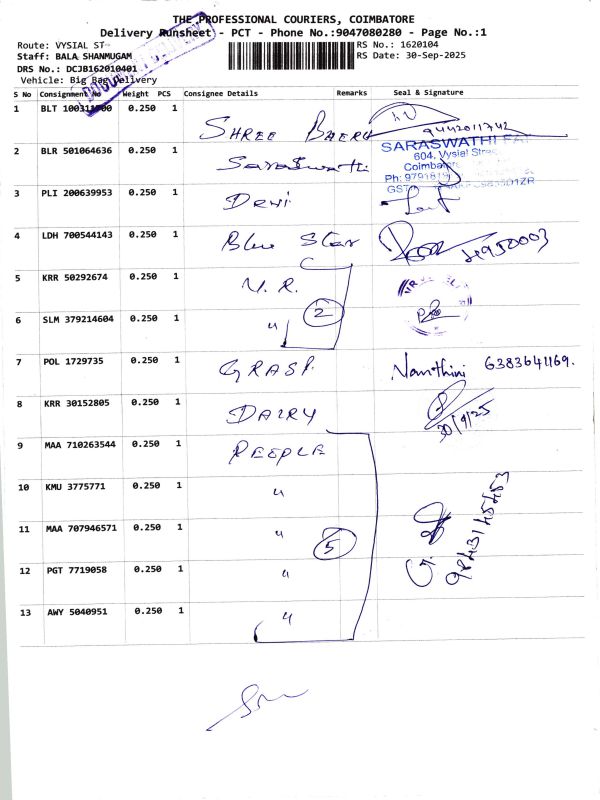 THE PROFESSIONAL COURIERS, COIMBATORE
Delivery Runsheet - PCT - Phone No.:9047080280 - Page No.:1
Route: VYSIAL ST
RS No.: 1620104
Staff: BALA SHANMUGAM
RS Date: 30-Sep-2025
DRS No.: DCJB162010401
Vehicle: Big Bag Delivery
S No Consignment No Weight PCS Consignee Details Remarks Seal & Signature
1 BLT 0.250 1 SHREE 9442011742
2 BLR 501064636 0.250 1 Saraswathi SARASWATHI
604, Vysial Stree
Coimbatore
3 PLI 200639953 0.250 1 Devi
4 LDH 700544143 0.250 1 Blue Star
5 KRR 50292674 0.250 1 V.R.
6 SLM 379214604 0.250 1 " 2
7 POL 1729735 0.250 1 GRASP Nanthini 6383641169.
8 KRR 30152805 0.250 1 DAIRY 30/9/25
9 MAA 710263544 0.250 1 PEEPLE
10 KMU 3775771 0.250 1 "
11 MAA 707946571 0.250 1 " 5
12 PGT 7719058 0.250 1 "
13 AWY 5040951 0.250 1 "